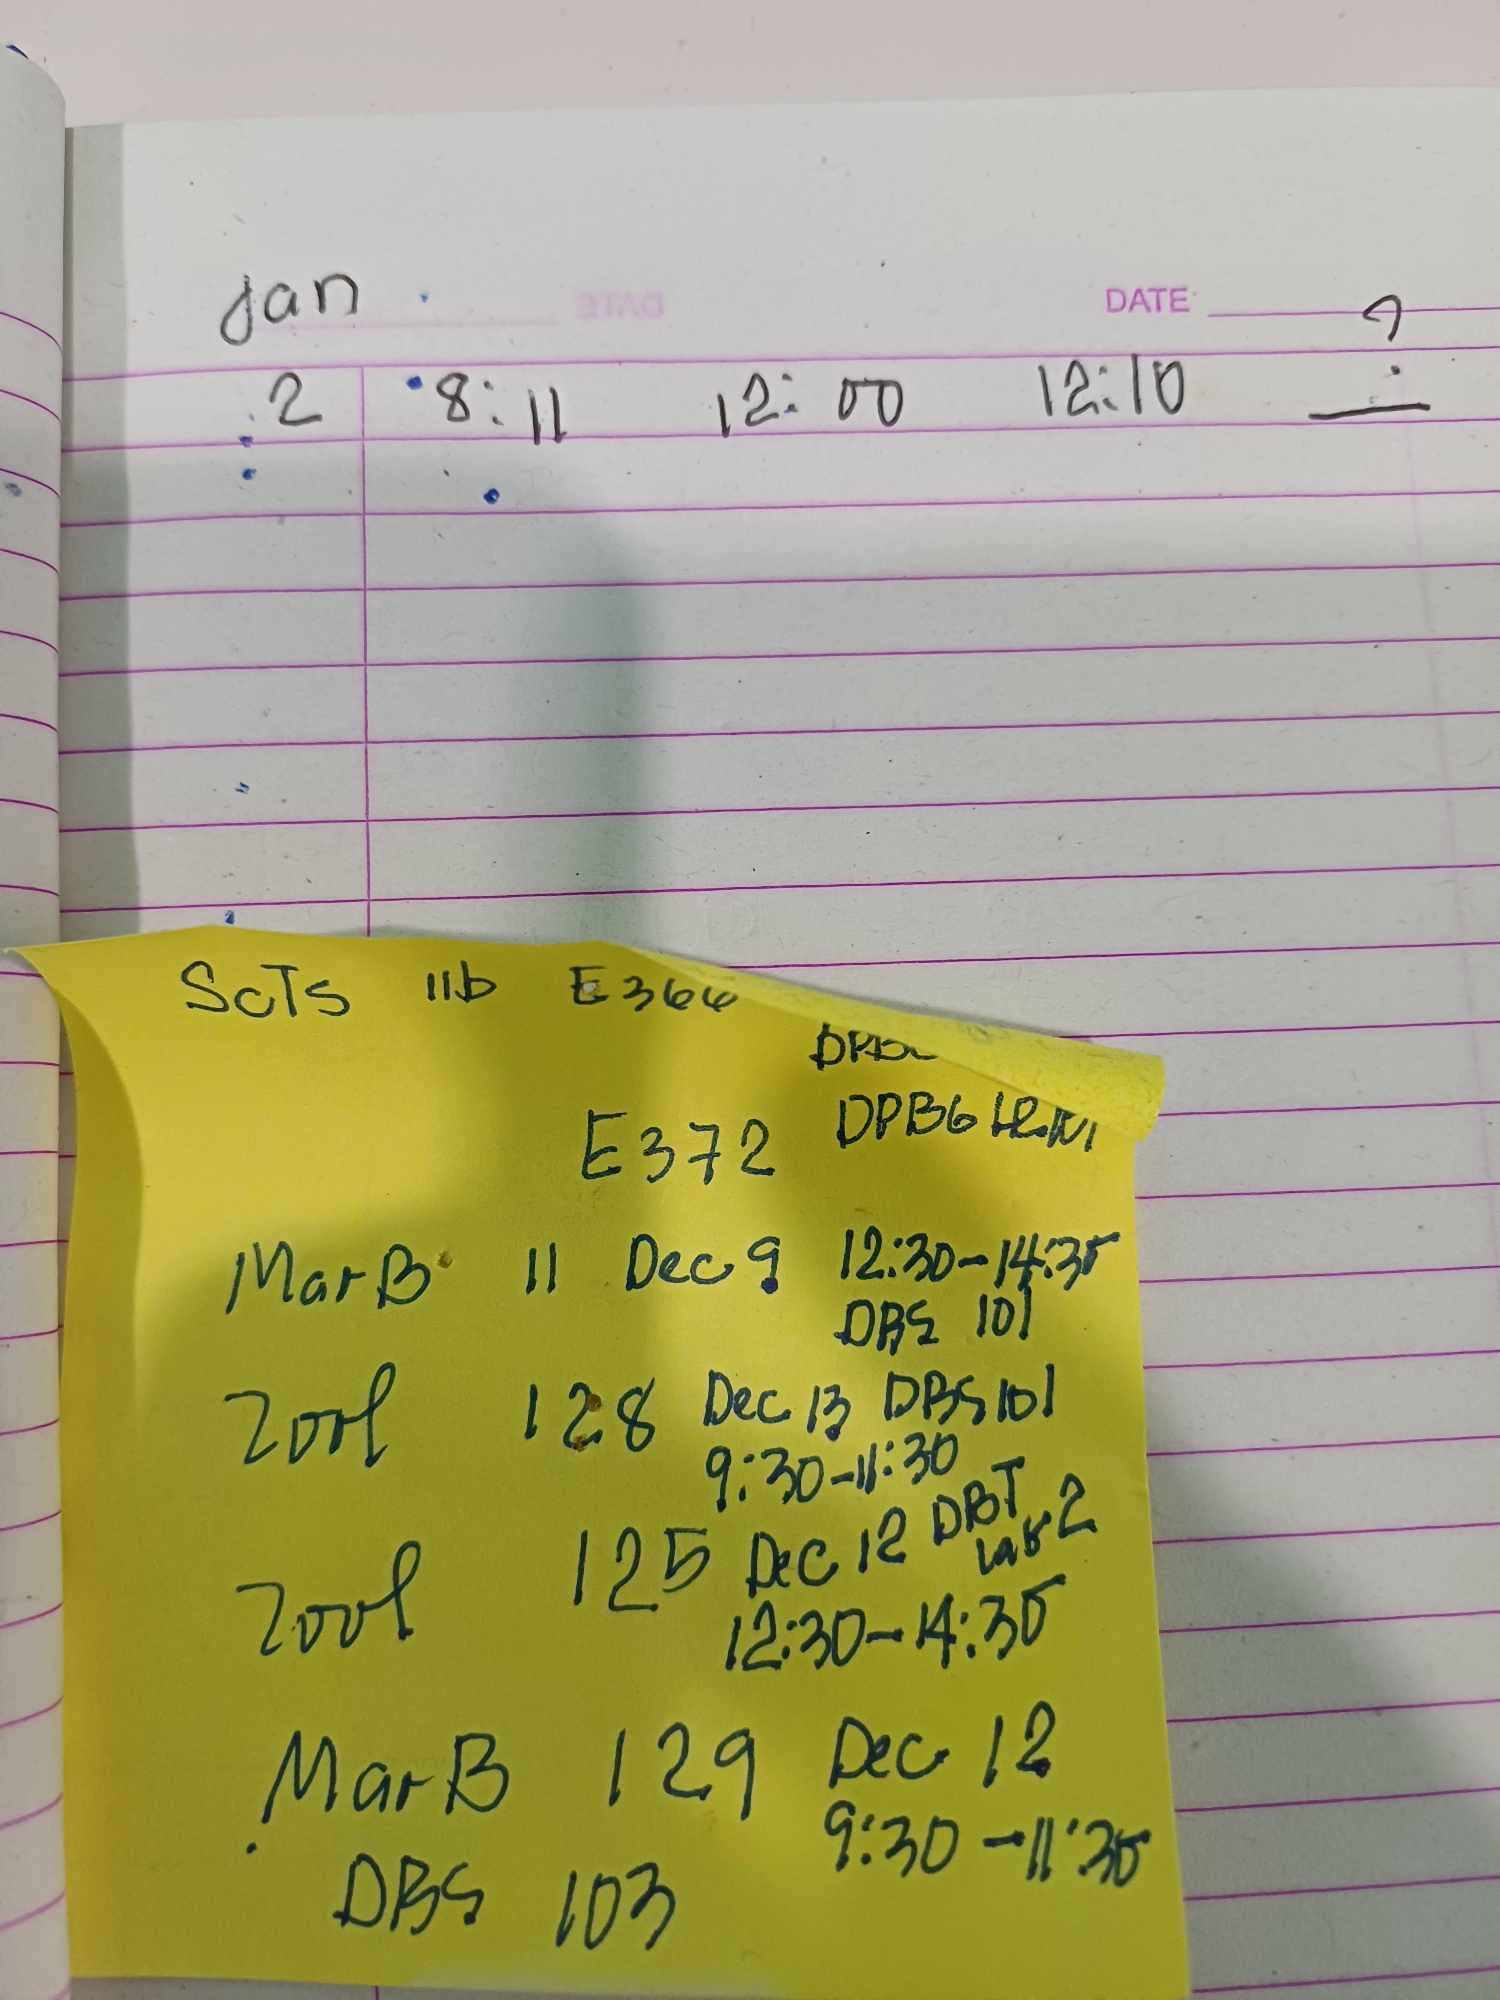 Jan DATE
2 8:11 12:00 12:10
ScTs 11b E366
E372 DPB6
MarB 11 Dec 9 12:30-14:30
DBS 101
Zool 128 Dec 13 DBS 101
9:30-11:30
Zool 125 Dec 12 DBT
Lab 2
12:30-14:30
MarB 129 Dec 12
9:30-11:30
DBS 103